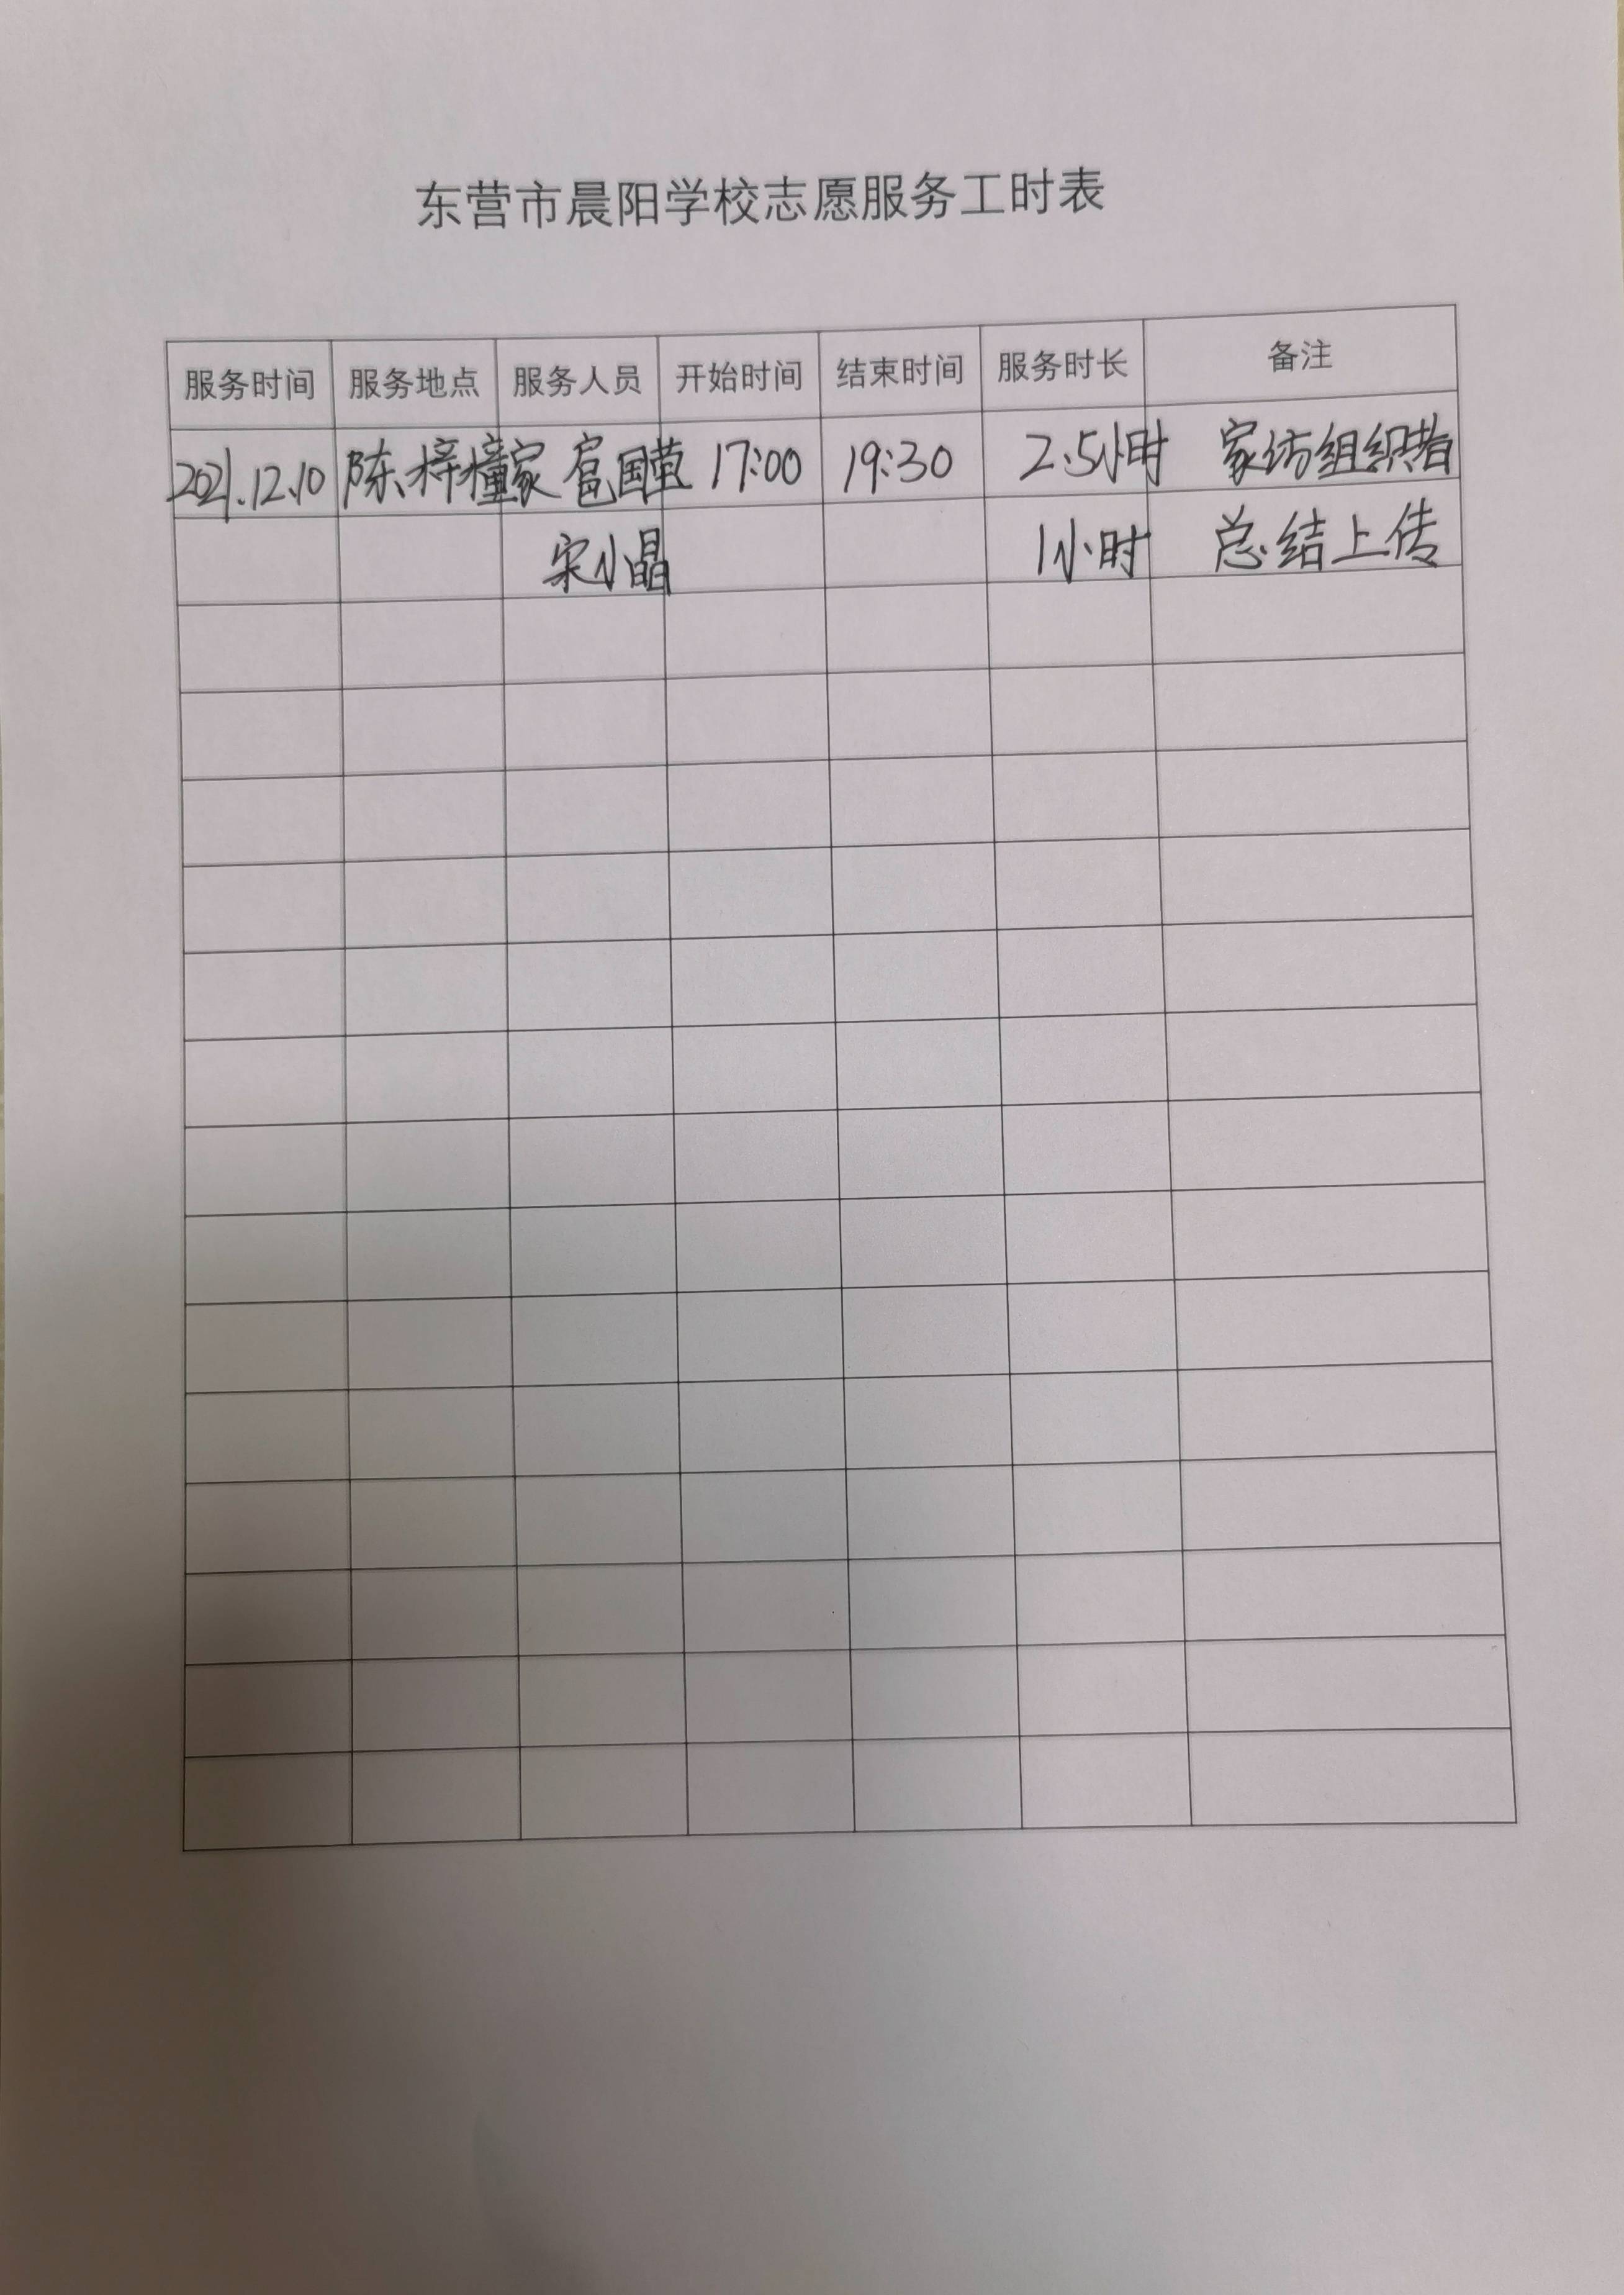 东营市晨阳学校志愿服务工时表
服务时间 服务地点 服务人员 开始时间 结束时间 服务时长 备注
2021.12.10 陈梓橦家 扈国营 17:00 19:30 2.5小时 家访组织者
宋小晶 1小时 总结上传